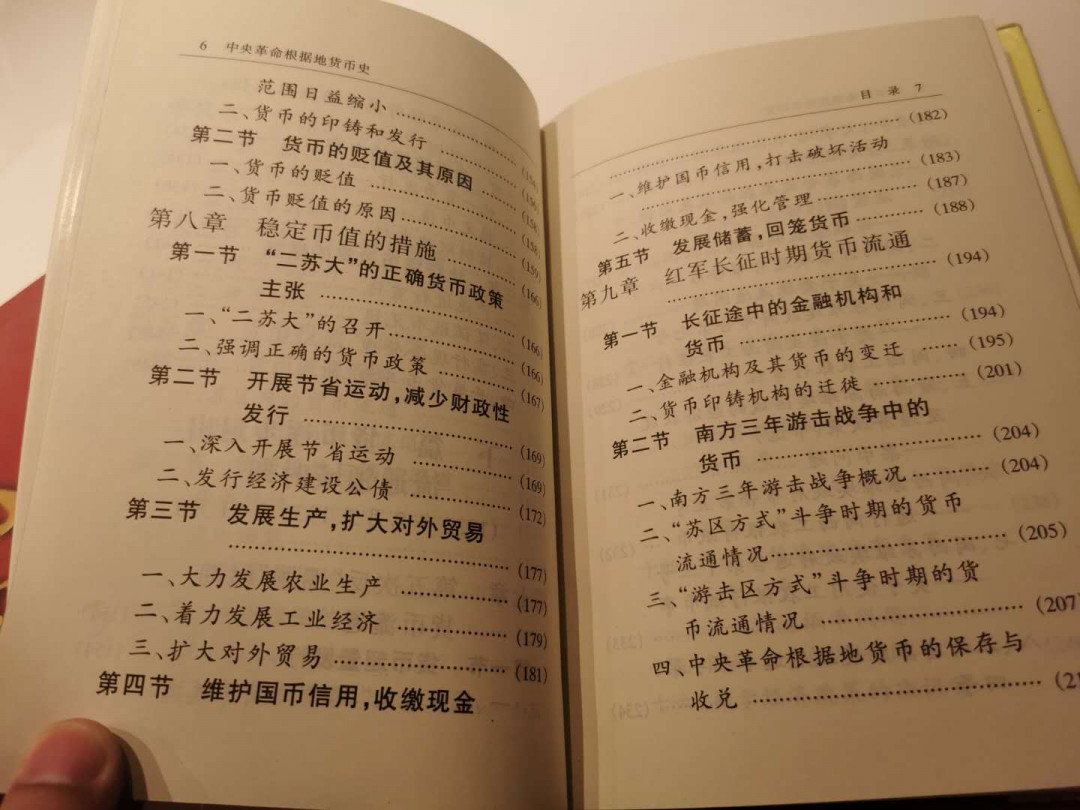 6 中央革命根据地货币史
范围日益缩小
二、货币的印铸和发行
第二节 货币的贬值及其原因
一、货币的贬值
二、货币贬值的原因 (158)
第八章 稳定币值的措施 (159)
第一节 “二苏大”的正确货币政策
主张 (166)
一、“二苏大”的召开 (166)
二、强调正确的货币政策 (166)
第二节 开展节省运动,减少财政性 (167)
发行
一、深入开展节省运动 (169)
二、发行经济建设公债 (169)
第三节 发展生产,扩大对外贸易 (172)
(177)
一、大力发展农业生产 (177)
二、着力发展工业经济 (179)
三、扩大对外贸易 (181)
第四节 维护国币信用,收缴现金
目录 7
(182)
一、维护国币信用,打击破坏活动
(183)
二、收缴现金,强化管理 (187)
第五节 发展储蓄,回笼货币 (188)
第九章 红军长征时期货币流通
(194)
第一节 长征途中的金融机构和
货币 (194)
一、金融机构及其货币的变迁 (195)
二、货币印铸机构的迁徙 (201)
第二节 南方三年游击战争中的
货币 (204)
一、南方三年游击战争概况 (204)
二、“苏区方式”斗争时期的货币
流通情况 (205)
三、“游击区方式”斗争时期的货
币流通情况 (207)
四、中央革命根据地货币的保存与
收兑